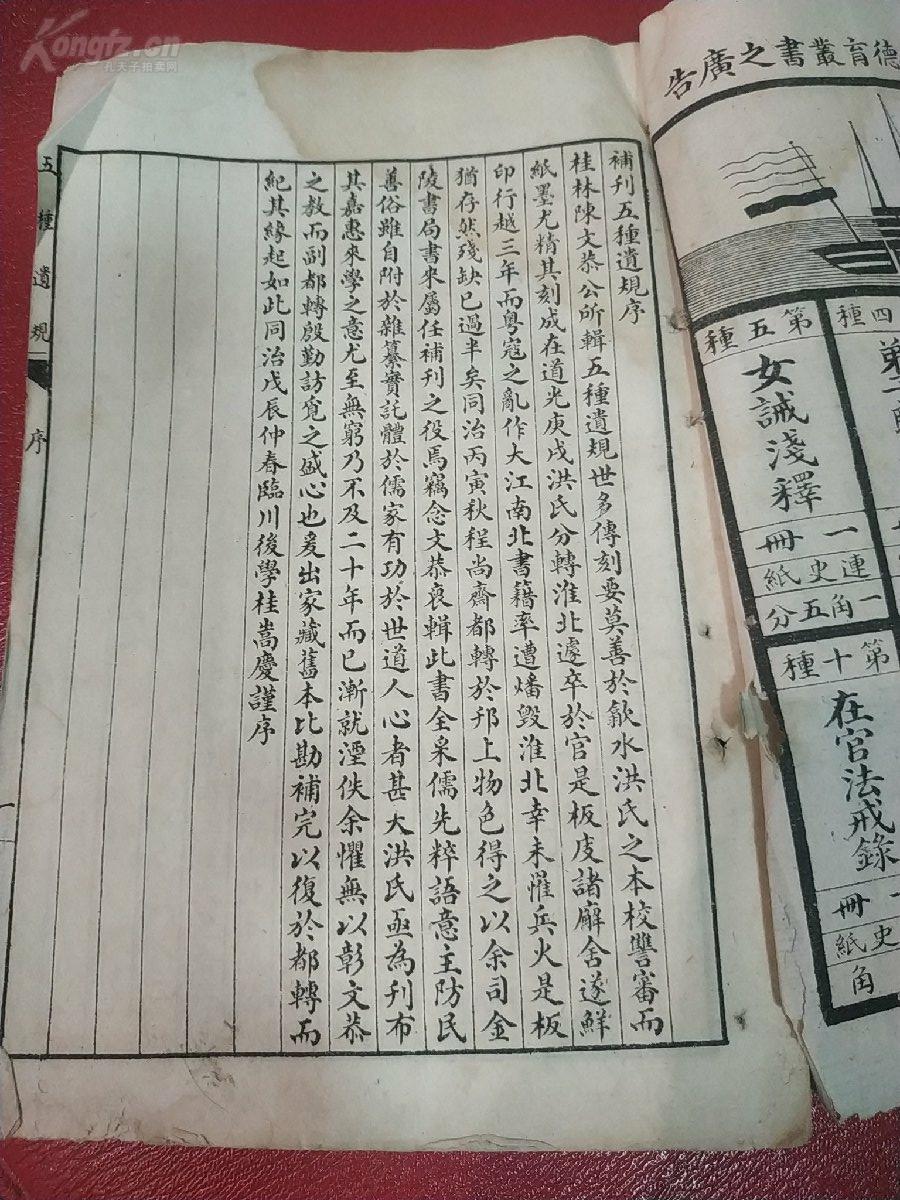 Kongfz.cn
孔夫子拍卖网
德育叢書之廣告
第五種
女誡淺釋
一冊
連史紙
一角五分
第十種
在官法戒錄
冊
史紙
角
四種
補刊五種遺規序
桂林陳文恭公所輯五種遺規世多傳刻要莫善於歙水洪氏之本校讐審而
紙墨尤精其刻成在道光庚戌洪氏分轉淮北遽卒於官是板庋諸廨舍遂鮮
印行越三年而粵寇之亂作大江南北書籍率遭燔毀淮北幸未罹兵火是板
猶存然殘缺已過半矣同治丙寅秋程尚齋都轉於邗上物色得之以余司金
陵書局書來屬任補刊之役焉竊念文恭裒輯此書全采儒先粹語意主防民
善俗雖自附於雜纂實託體於儒家有功於世道人心者甚大洪氏亟為刊布
其嘉惠來學之意尤至無窮乃不及二十年而已漸就湮佚余懼無以彰文恭
之教而副都轉殷勤訪覓之盛心也爰出家藏舊本比勘補完以復於都轉而
紀其緣起如此同治戊辰仲春臨川後學桂嵩慶謹序
五種遺規
序
一